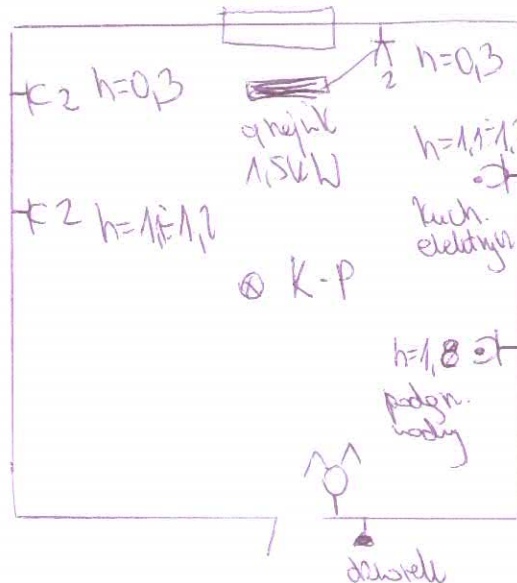 2 h=0,3
2 h=0,3
grzejnik
1,5kW
h=1,1÷1,
2 h=1,1÷1,2
kuch.
elektrycz
K-P
h=1,8
podgrz.
wody
dzwonek